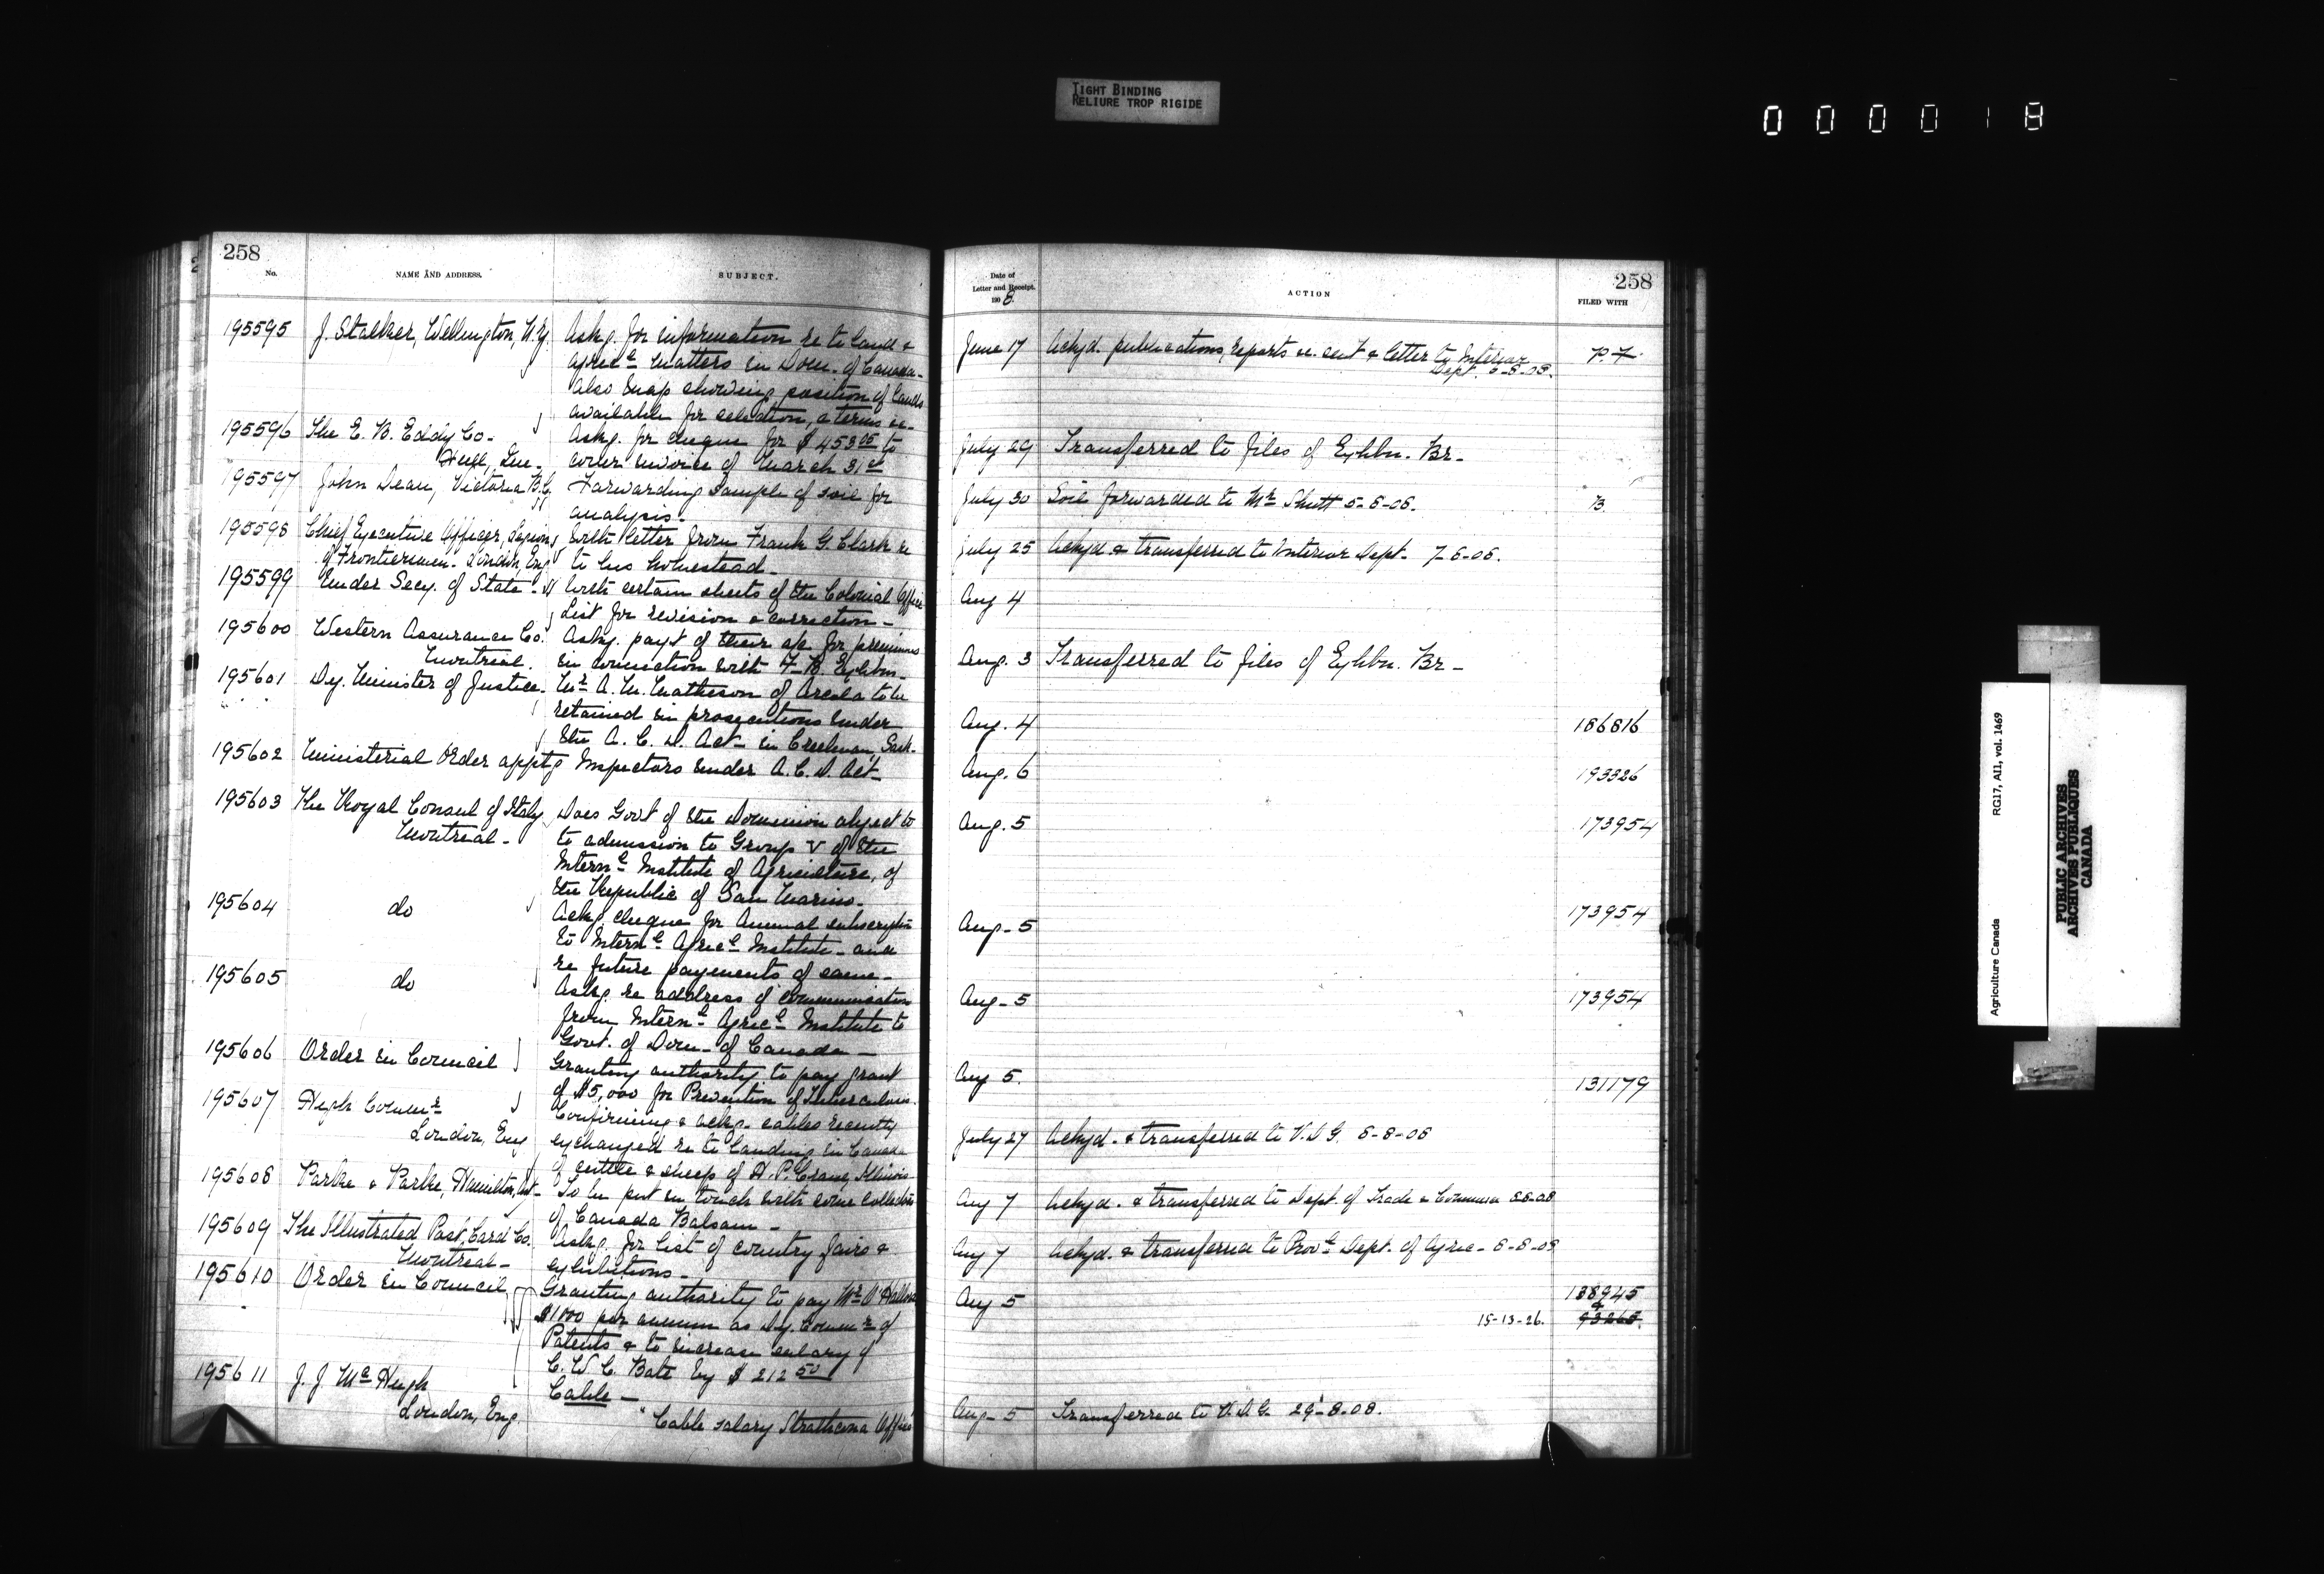 TIGHT BINDING
RELIURE TROP RIGIDE
000018
258
No.
NAME AND ADDRESS.
SUBJECT.
195595 J. Stalker, Wellington, N.Z. Askg. for information re to land &
agricl matters in Dom. of Canada-
also map showing position of lands
available for selection, & terms &c-
195596 The E. B. Eddy Co- Askg. for cheque for $453.05 to
Hull, Que- cover invoice of March 31st
195597 John Dean, Victoria B.C. Forwarding sample of soil for
analysis-
195598 Chief Executive Officer, Legion With letter from Frank G. Clark re
of Frontiersmen- London, Eng to his homestead-
195599 Under Secy. of State- With certain sheets of the Colonial Office
List for revision & correction-
195600 Western Assurance Co. Askg. payt of their a/c for premiums
Montreal. in connection with F-B Exhbn-
195601 Dy. Minister of Justice- Mr A. M. Matheson of Arcola to be
retained in prosecutions under
the A. C. D. Act- in Creelman, Sask-
195602 Ministerial Order apptg Inspectors under A. C. D. Act-
195603 The Royal Consul of Italy Does Govt of the Dominion object to
Montreal- to admission to Group V of the
Internl Institute of Agriculture, of
the Republic of San Marino-
195604 do Ackg. cheque for Annual subscription
to Internl Agricl Institute- and
re future payments of same-
195605 do Askg. re address of communication
from Internl Agricl Institute to
Govt. of Dom- of Canada-
195606 Order in Council Granting authority to pay grant
of $5,000 for Prevention of Tuberculosis-
195607 High Commr Confirming & ackg- cables recently
London, Eng exchanged re to landing in Canada
of cattle & sheep of H. P. Crane, Illinois-
195608 Parke & Parke, Hamilton, Ont- To be put in touch with some collectors
of Canada Balsam-
195609 The Illustrated Post Card Co. Askg. for list of country fairs &
Montreal- exhibitions-
195610 Order in Council Granting authority to pay Mr O'Halloran
$1000 per annum as Dy. Commr of
Patents & to increase salary of
C. W. C. Bate by $212.50
195611 J. J. McHugh Cable-
London, Eng. "Cable salary Strathcona Office"
258
Date of
Letter and Receipt.
1908
ACTION
FILED WITH
June 17 Ackyd. publications, reports &c. sent & letter to Interior P. F.
Dept. 5-8-08.
July 29 Transferred to files of Exhbn. Br-
July 30 Soil forwarded to Mr Shutt 5-8-08. B.
July 25 Ackyd & transferred to Interior Dept- 7-8-08.
Aug 4
Aug. 3 Transferred to files of Exhbn. Br-
Aug. 4 186816
Aug. 6 193326
Aug. 5 173954
Aug- 5 173954
Aug- 5 173954
Aug 5. 131179
July 27 Ackyd. & transferred to V.D.G. 8-8-08
Aug 7 Ackyd. & transferred to Dept. of Trade & Commerce 8-8-08
Aug 7 Ackyd. & transferred to Provl Dept. of Agric- 8-8-08
Aug 5 138945
&
15-13-26. 93268.
Aug- 5 Transferred to V.D.G. 29-8-08.
Agriculture Canada RG17, AII, vol. 1469
PUBLIC ARCHIVES
ARCHIVES PUBLIQUES
CANADA